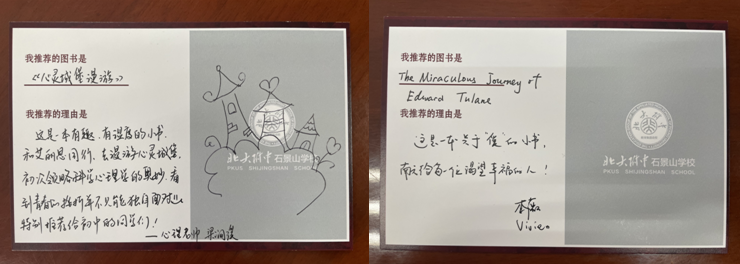 我推荐的图书是
《心灵城堡漫游》
我推荐的理由是
这是一本有趣、有深度的小书,
和艾丽思同行,去漫游心灵城堡,
初次领略科学心理学的奥妙,看
到青春的挫折并不只能独自面对!
特别推荐给初中的同学们!
——心理老师
北大附中石景山学校
PKUS SHIJINGSHAN SCHOOL
我推荐的图书是
The Miraculous Journey of
Edward Tulane
我推荐的理由是
这是一本关于“爱”的小书,
献给每一位渴望幸福的人!
Vivien
北大附中石景山学校
PKUS SHIJINGSHAN SCHOOL